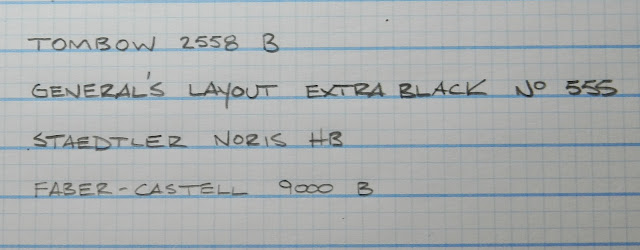 TOMBOW 2558 B
GENERAL'S LAYOUT EXTRA BLACK No 555
STAEDTLER NORIS HB
FABER-CASTELL 9000 B